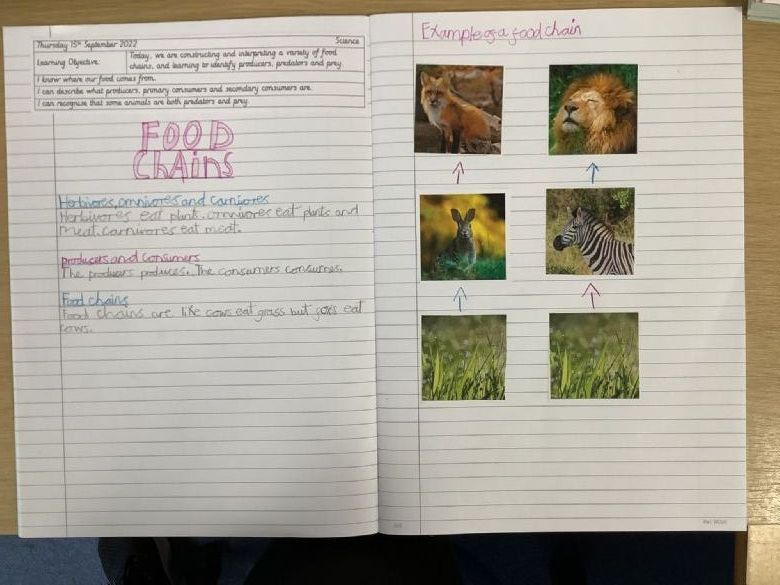 Thursday 15th September 2022 Science
Learning Objective: Today, we are constructing and interpreting a variety of food
chains, and learning to identify producers, predators and prey.
I know where our food comes from.
I can describe what producers, primary consumers and secondary consumers are.
I can recognise that some animals are both predators and prey.
FOOD
ChAinS
Herbivores, omnivores and Carnivores
Herbivores eat plants. omnivores eat plants and
meat. carnivores eat meat.
producers and consumers
The producers produces. The consumers consumes.
Food chains
Food chains are like cows eat grass but eat
cows.
Example of a food chain